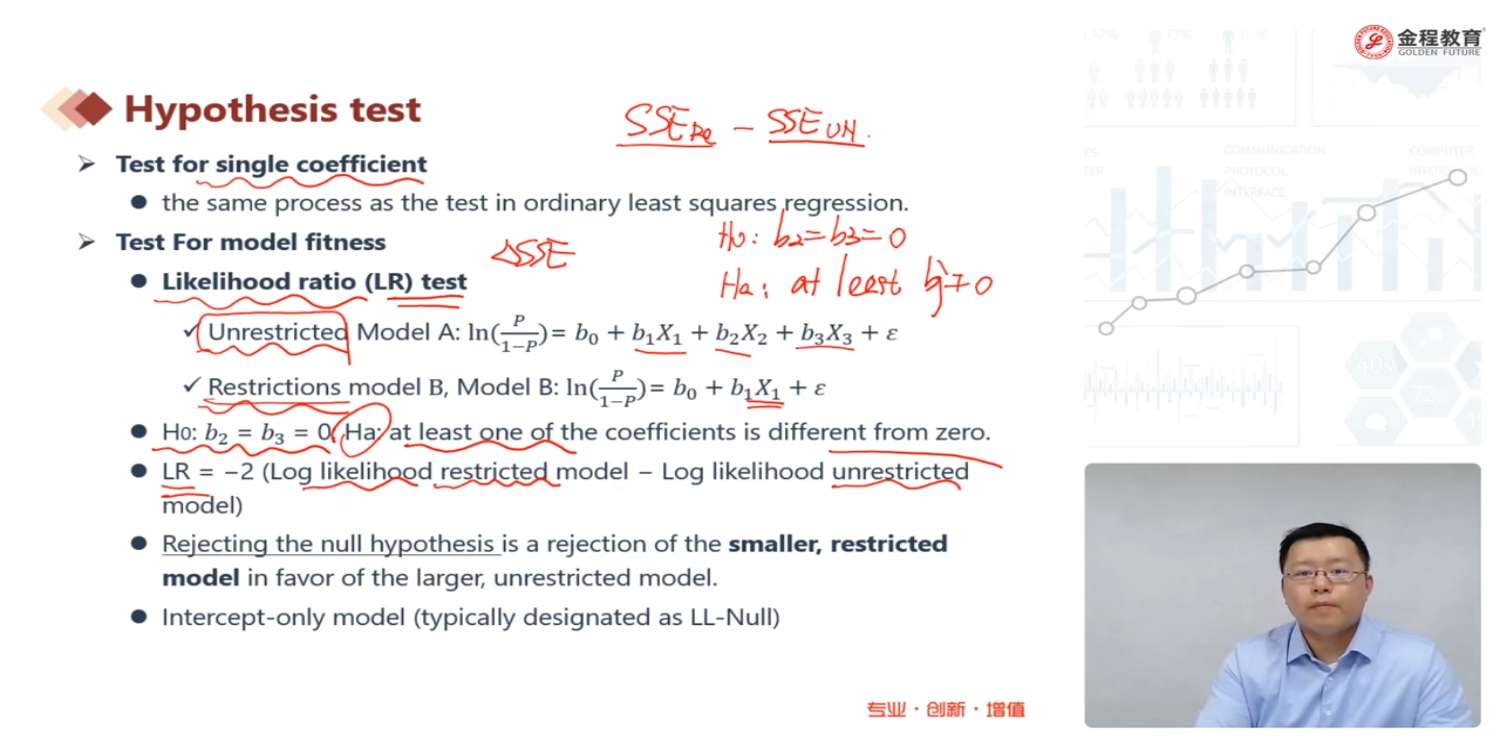 金程教育
GOLDEN FUTURE
Hypothesis test
SSE Re - SSE UN.
Test for single coefficient
the same process as the test in ordinary least squares regression.
Test For model fitness
△SSE
H0: b2=b3=0
Likelihood ratio (LR) test
Ha: at least bj≠0
✓ Unrestricted Model A: ln(P/1−P)= b0 + b1X1 + b2X2 + b3X3 + ε
✓ Restrictions model B, Model B: ln(P/1−P)= b0 + b1X1 + ε
H0: b2 = b3 = 0, Ha: at least one of the coefficients is different from zero.
LR = −2 (Log likelihood restricted model − Log likelihood unrestricted
model)
Rejecting the null hypothesis is a rejection of the smaller, restricted
model in favor of the larger, unrestricted model.
Intercept-only model (typically designated as LL-Null)
专业·创新·增值
COMMUNICATION
PROTOCOL
INTERFACE